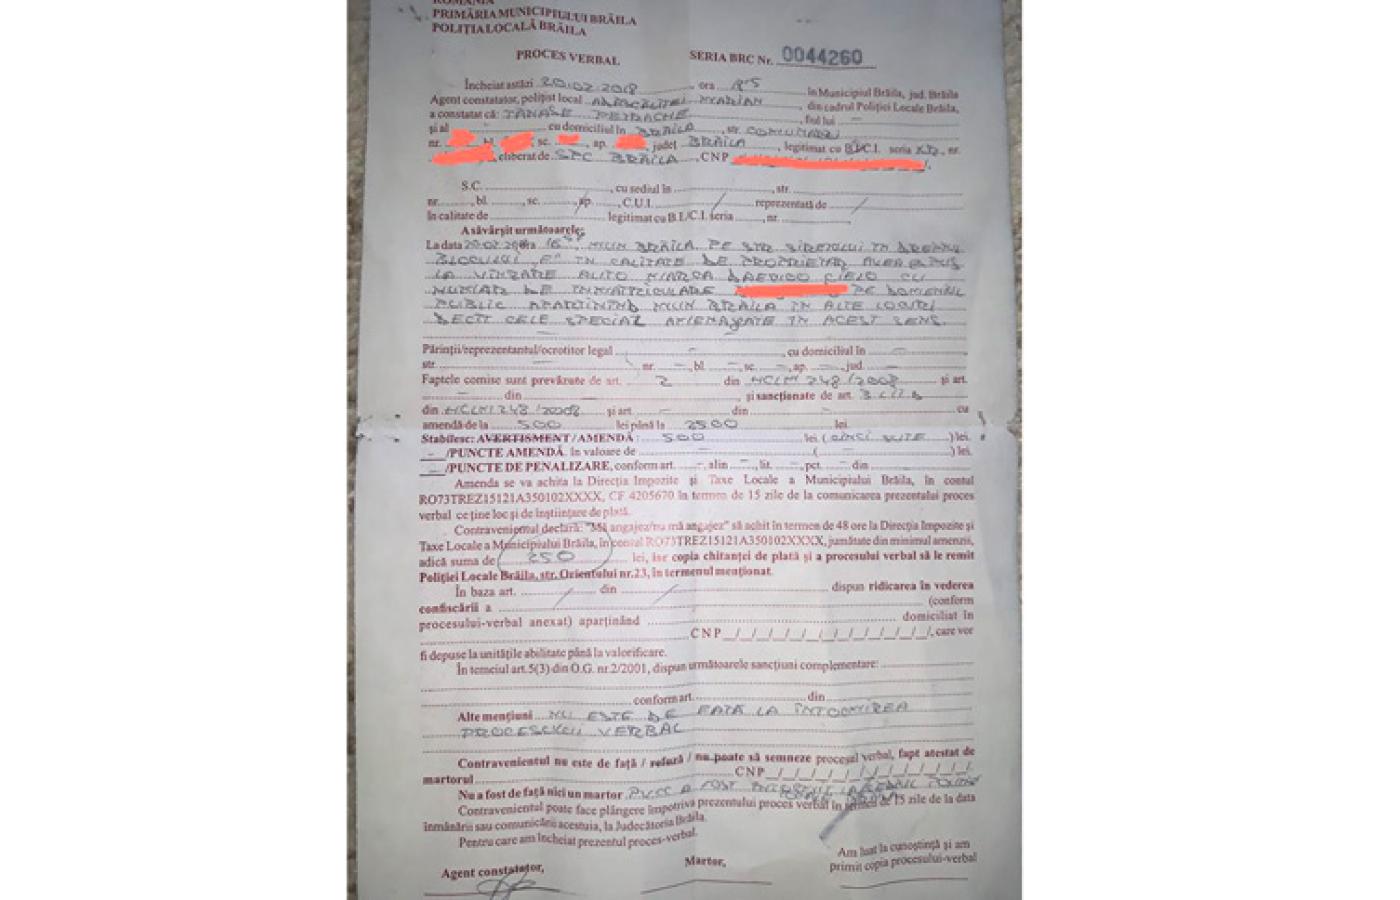 ROMÂNIA
PRIMĂRIA MUNICIPIULUI BRĂILA
POLIȚIA LOCALĂ BRĂILA
PROCES VERBAL SERIA BRC Nr. 0044260
Încheiat astăzi 20.02.2018, ora în Municipiul Brăila, jud. Brăila
Agent constatator, polițist local MARIAN, din cadrul Poliției Locale Brăila,
a constatat că: TĂNASE PETRACHE, fiul lui —
și al, cu domiciliul în BRĂILA, str.
nr. bl. sc. , ap. județ BRĂILA, legitimat cu B.I./C.I. seria nr.
eliberat de SPC BRĂILA, CNP
S.C. , cu sediul în , str.
nr. , bl. , sc. , ap. , C.U.I. / reprezentată de /
în calitate de legitimat cu B.I./C.I. seria , nr.
A săvârșit următoarele:
La data 20.02. ora MUN BRĂILA PE STR SIRETULUI ÎN DREPTUL
BLOCULUI ÎN CALITATE DE PROPRIETAR A
LA VÎNZARE AUTO MARCA CIELO CU
NUMĂR DE ÎNMATRICULARE PE DOMENIUL
PUBLIC APARȚINÎND MUN BRĂILA ÎN ALTE LOCURI
DECÎT CELE SPECIAL AMENAJATE ÎN ACEST SENS.
Părinții/reprezentantul/ocrotitor legal — , cu domiciliul în —
str. — nr. — , bl. — , sc. — , ap. — , jud. —
Faptele comise sunt prevăzute de art. 2 din HCLM 248/2008 și art.
— din — și sancționate de art. 3
din HCLM 248/2008 și art — din — cu
amendă de la 500 lei până la 2500 lei.
Stabilesc: AVERTISMENT / AMENDĂ : 500 lei ( CINCI SUTE ) lei.
— /PUNCTE AMENDĂ. în valoare de — ( — ) lei.
— /PUNCTE DE PENALIZARE, conform art. — , alin — , lit. — , pct. — din
Amenda se va achita la Direcția Impozite și Taxe Locale a Municipiului Brăila, în contul
RO73TREZ15121A350102XXXX, CF 4205670 în termen de 15 zile de la comunicarea prezentului proces
verbal ce ține loc și de înștiințare de plată.
Contravenientul declară: "Mă angajez/nu mă angajez" să achit în termen de 48 ore la Direcția Impozite și
Taxe Locale a Municipiului Brăila, în contul RO73TREZ15121A350102XXXX, jumătate din minimul amenzii,
adică suma de 250 lei, iar copia chitanței de plată și a procesului verbal să le remit
Poliției Locale Brăila, str. Orientului nr.23, în termenul menționat.
În baza art. / din / dispun ridicarea în vederea
confiscării a (conform
procesului-verbal anexat) aparținând domiciliat în
CNP_/_/_/_/_/_/_/_/_/_/_/_/_/, care vor
fi depuse la unitățile abilitate până la valorificare.
În temeiul art. 5(3) din O.G. nr.2/2001, dispun următoarele sancțiuni complementare:
conform art. din
Alte mențiuni NU ESTE DE FAȚĂ LA ÎNTOCMIREA
PROCESULUI VERBAL
Contravenientul nu este de față / refuză / nu poate să semneze procesul verbal, fapt atestat de
martorul CNP_/_/_/_/_/_/_/_/_/_/_/_/_/
Nu a fost de față nici un martor A FOST
Contravenientul poate face plângere împotriva prezentului proces verbal în termen de 15 zile de la data
înmânării sau comunicării acestuia, la Judecătoria Brăila.
Pentru care am încheiat prezentul proces-verbal.
Agent constatator, Martor, Am luat la cunoștință și am
primit copia procesului-verbal